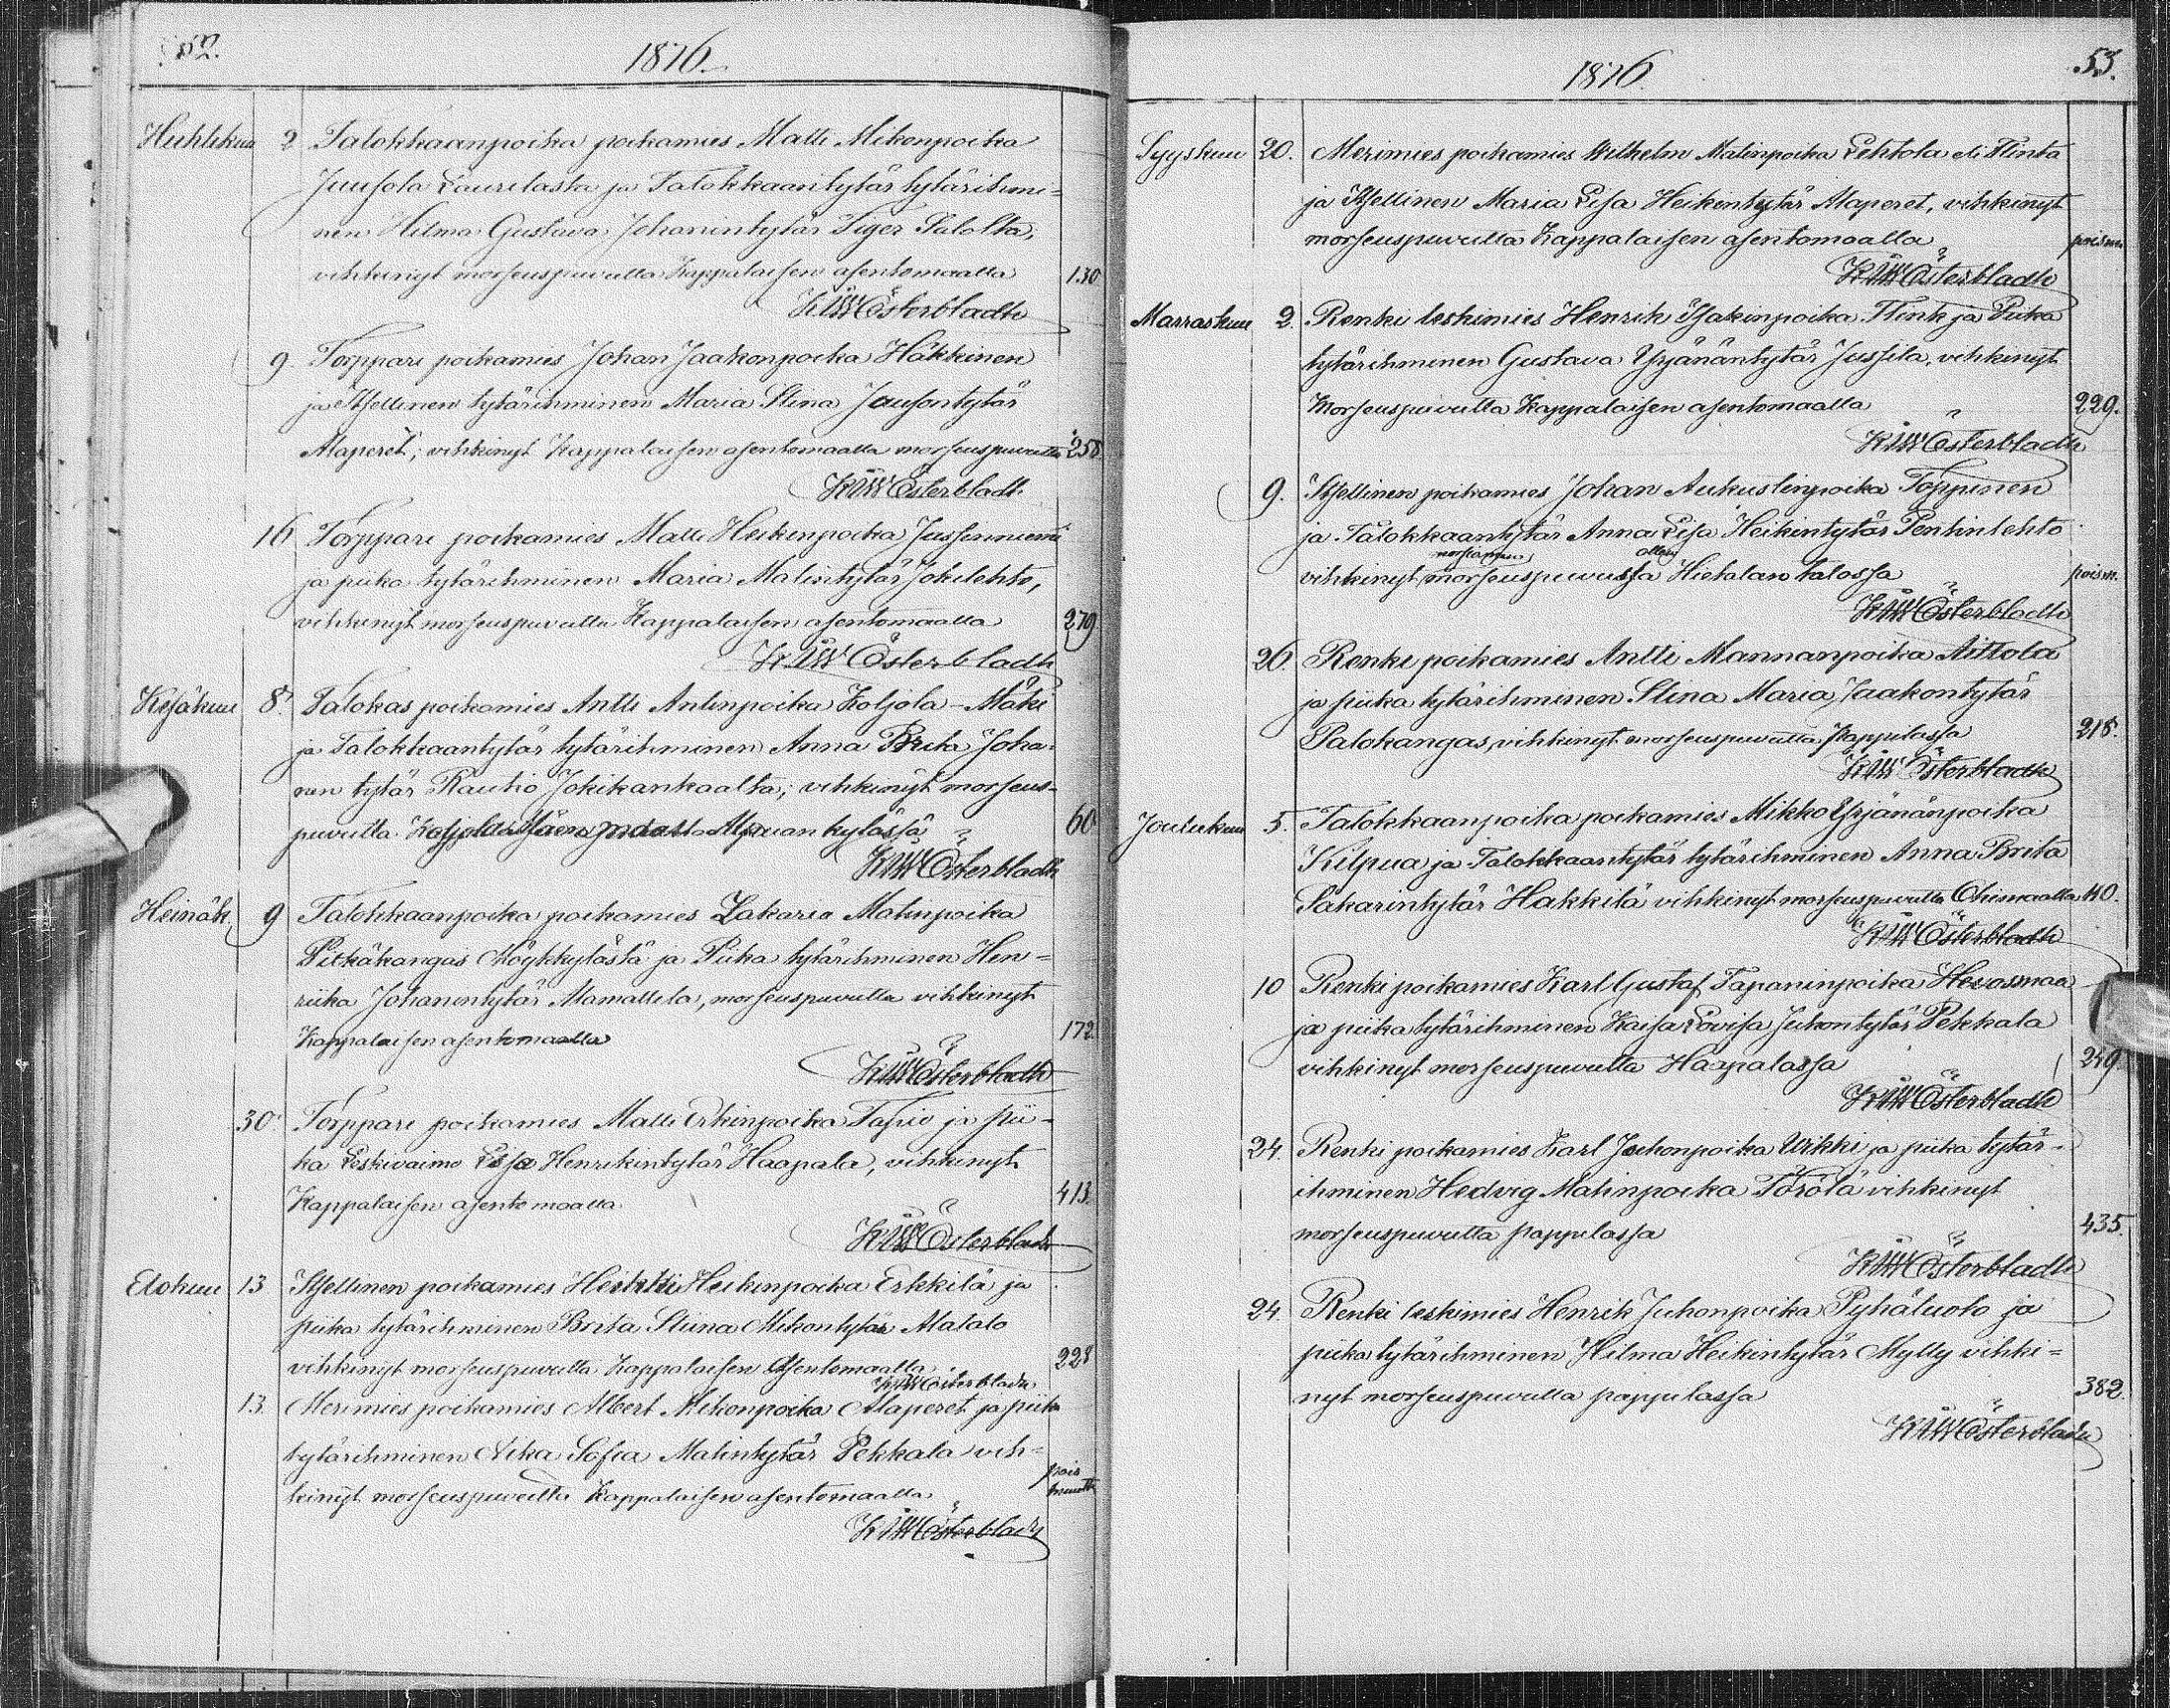 52.
1876.
Huhtikuu 2 Talokkaanpoika poikamies Matti Mikonpoika
Juusola Laurilasta ja Talokkaantytär tytärihmi-
nen Hilma Gustava Johanintytär Tiger Salolta,
vihkinyt morseuspuvutta Kappalaisen asentomaalla 130
KWWÖsterbladh
9. Torppari poikamies Johan Jaakonpoika Häkkinen
ja Itsellinen tytärihminen Maria Stina
Alaperet, vihkinyt Kappalaisen asentomaalla morseuspuvutta 258.
KWWÖsterbladh
16 Torppari poikamies Matti Heikinpoika Jussinniemi
ja piika tytärihminen Maria Matintytär Jokilehto,
vihkinyt morseuspuvutta Kappalaisen asentomaalla 279.
KWWÖsterbladh
Kesäkuu 8. Talokas poikamies Antti Antinpoika Koljola-Mäki
ja Talokkaantytär tytärihminen Anna Brita Joha-
nin tytär Rautio Jokikankaalta, vihkinyt morseus-
puvutta kylässä 60
KWWÖsterbladh
Heinäk. 9 Talokkaanpoika poikamies Zakaria Matinpoika
Pitkäkangas Möykkylästä ja Piika tytärihminen Hen-
riika Johanintytär Alamattila, morseuspuvutta vihkinyt
Kappalaisen asentomaalla 172.
KWWÖsterbladh
30. Torppari poikamies Matti Erkinpoika Tapio ja pii-
ka Leskivaimo Lisa Henrikintytär Haapala, vihkinyt
Kappalaisen asentomaalla. 413.
KWWÖsterbladh
Elokuu 13 Itsellinen poikamies Heikki Heikinpoika Erkkilä ja
piika tytärihminen Brita Stiina Mikontytär Alatalo
vihkinyt morseuspuvutta Kappalaisen Asentomaalla. 228
KWWÖsterbladh
13. Merimies poikamies Albert Mikonpoika Alaperet ja piika
tytärihminen Aika Sofia Matintytär Pekkala vih-
kinyt morseuspuvutta Kappalaisen asentomaalla. pois muutt.
KWWÖsterbladh
1876.
53.
Syyskuu 20. Merimies poikamies Wilhelm Matinpoika Lehtola eli Flinta
ja Itsellinen Maria Lisa Heikintytär Alaperet, vihkinyt
morseuspuvutta Kappalaisen asentomaalla poism.
KWWÖsterbladh
Marraskuu 2. Renki leskimies Henrik Isakinpoika Flink ja Piika
tytärihminen Gustava Yrjänäntytär Jussila, vihkinyt
Morseuspuvutta Kappalaisen asentomaalla 229.
KWWÖsterbladh
9. Itsellinen poikamies Johan Aukustinpoika Toppinen
ja Talokkaantytär Anna Lisa Heikintytär Pentinlehto
morsiamen ollen
vihkinyt, morseuspuvussa Hietalan talossa poism.
KWWÖsterbladh
26. Renki poikamies Antti Mannanpoika Aittola
ja piika tytärihminen Stina Maria Jaakontytär
Palokangas, vihkinyt morseuspuvutta Pappilassa 218.
KWWÖsterbladh
Joulukuu 5. Talokkaanpoika poikamies Mikko Yrjänänpoika
Kilpua ja Talokkaantytär tytärihminen Anna Brita
Sakarintytär Hakkilä vihkinyt morseuspuvutta Ohimaalla 40.
KWWÖsterbladh
10 Renki poikamies Karl Gustaf Tapaninpoika Hevosmaa
ja piika tytärihminen Kaisa Lovisa Juhontytär Pekkala
vihkinyt morseuspuvutta Haapalassa 249
KWWÖsterbladh
24. Renki poikamies Karl Juhonpoika Ukki ja piika tytär-
ihminen Hedvig Matinpoika Törölä vihkinyt
morseuspuvutta pappilassa 435.
KWWÖsterbladh
24. Renki leskimies Henrik Juhonpoika Pyhäluoto ja
piika tytärihminen Hilma Heikintytär Mylly vihki-
nyt morseuspuvutta pappilassa 382.
KWWÖsterbladh